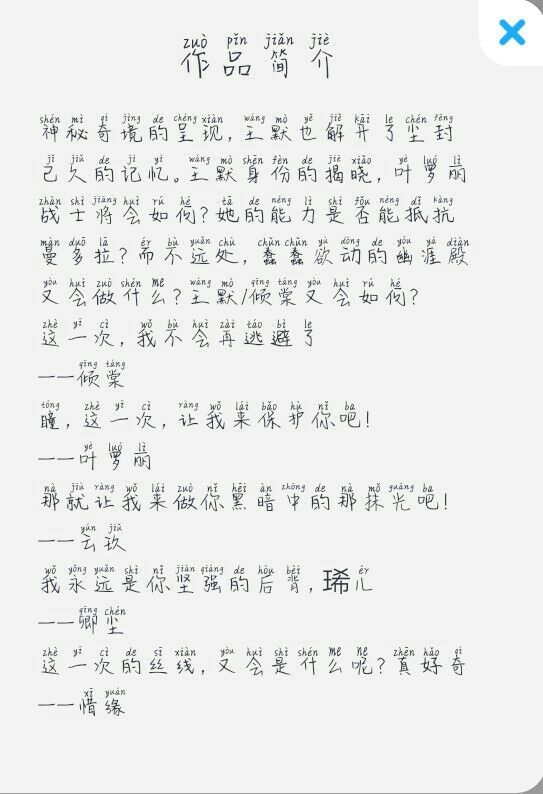 zuò pǐn jiǎn jiè
作品简介
shén mì qí jìng de chéng xiàn wáng mò yě jiě kāi le chén fēng
神秘奇境的呈现，王默也解开了尘封
jǐ jiǔ de jì yì wáng mò shēn fèn de jiē xiǎo yè luó lì
己久的记忆。王默身份的揭晓，叶萝丽
zhàn shì jiāng huì rú hé tā de néng lì shì fǒu néng dǐ kàng
战士将会如何？她的能力是否能抵抗
màn duō lā ér bù yuǎn chù chǔn chǔn yù dòng de yōu yá diàn
曼多拉？而不远处，蠢蠢欲动的幽涯殿
yòu huì zuò shén me wáng mò qīng táng yòu huì rú hé
又会做什么？王默/倾棠又会如何？
zhè yī cì wǒ bù huì zài táo bì le
这一次，我不会再逃避了
qīng táng
——倾棠
tóng zhè yī cì ràng wǒ lái bǎo hù nǐ ba
瞳，这一次，让我来保护你吧！
yè luó lì
——叶萝丽
nà jiù ràng wǒ lái zuò nǐ hēi àn zhōng de nà mǒ guāng ba
那就让我来做你黑暗中的那抹光吧！
yún jiǔ
——云玖
wǒ yǒng yuǎn shì nǐ jiān qiáng de hòu bèi ér
我永远是你坚强的后背，琋儿
qīng chén
——卿尘
zhè yī cì de sī xiàn yòu huì shì shén me ne zhēn hǎo qí
这一次的丝线，又会是什么呢？真好奇
xī yuán
——惜缘